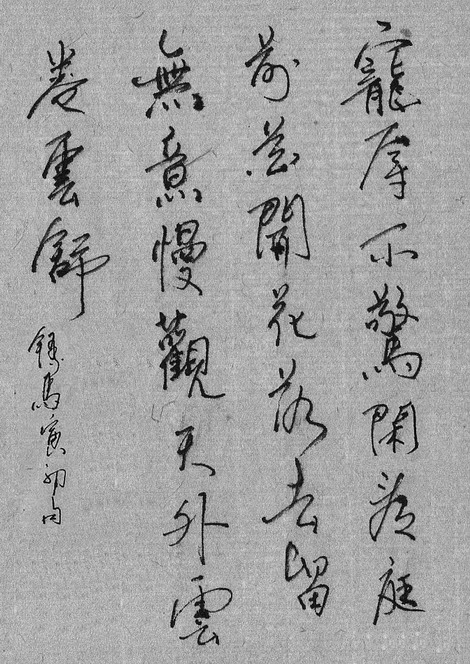 寵辱不驚閑看庭
前花開花落去留
無意慢觀天外雲
卷雲舒
錄馬寅初句